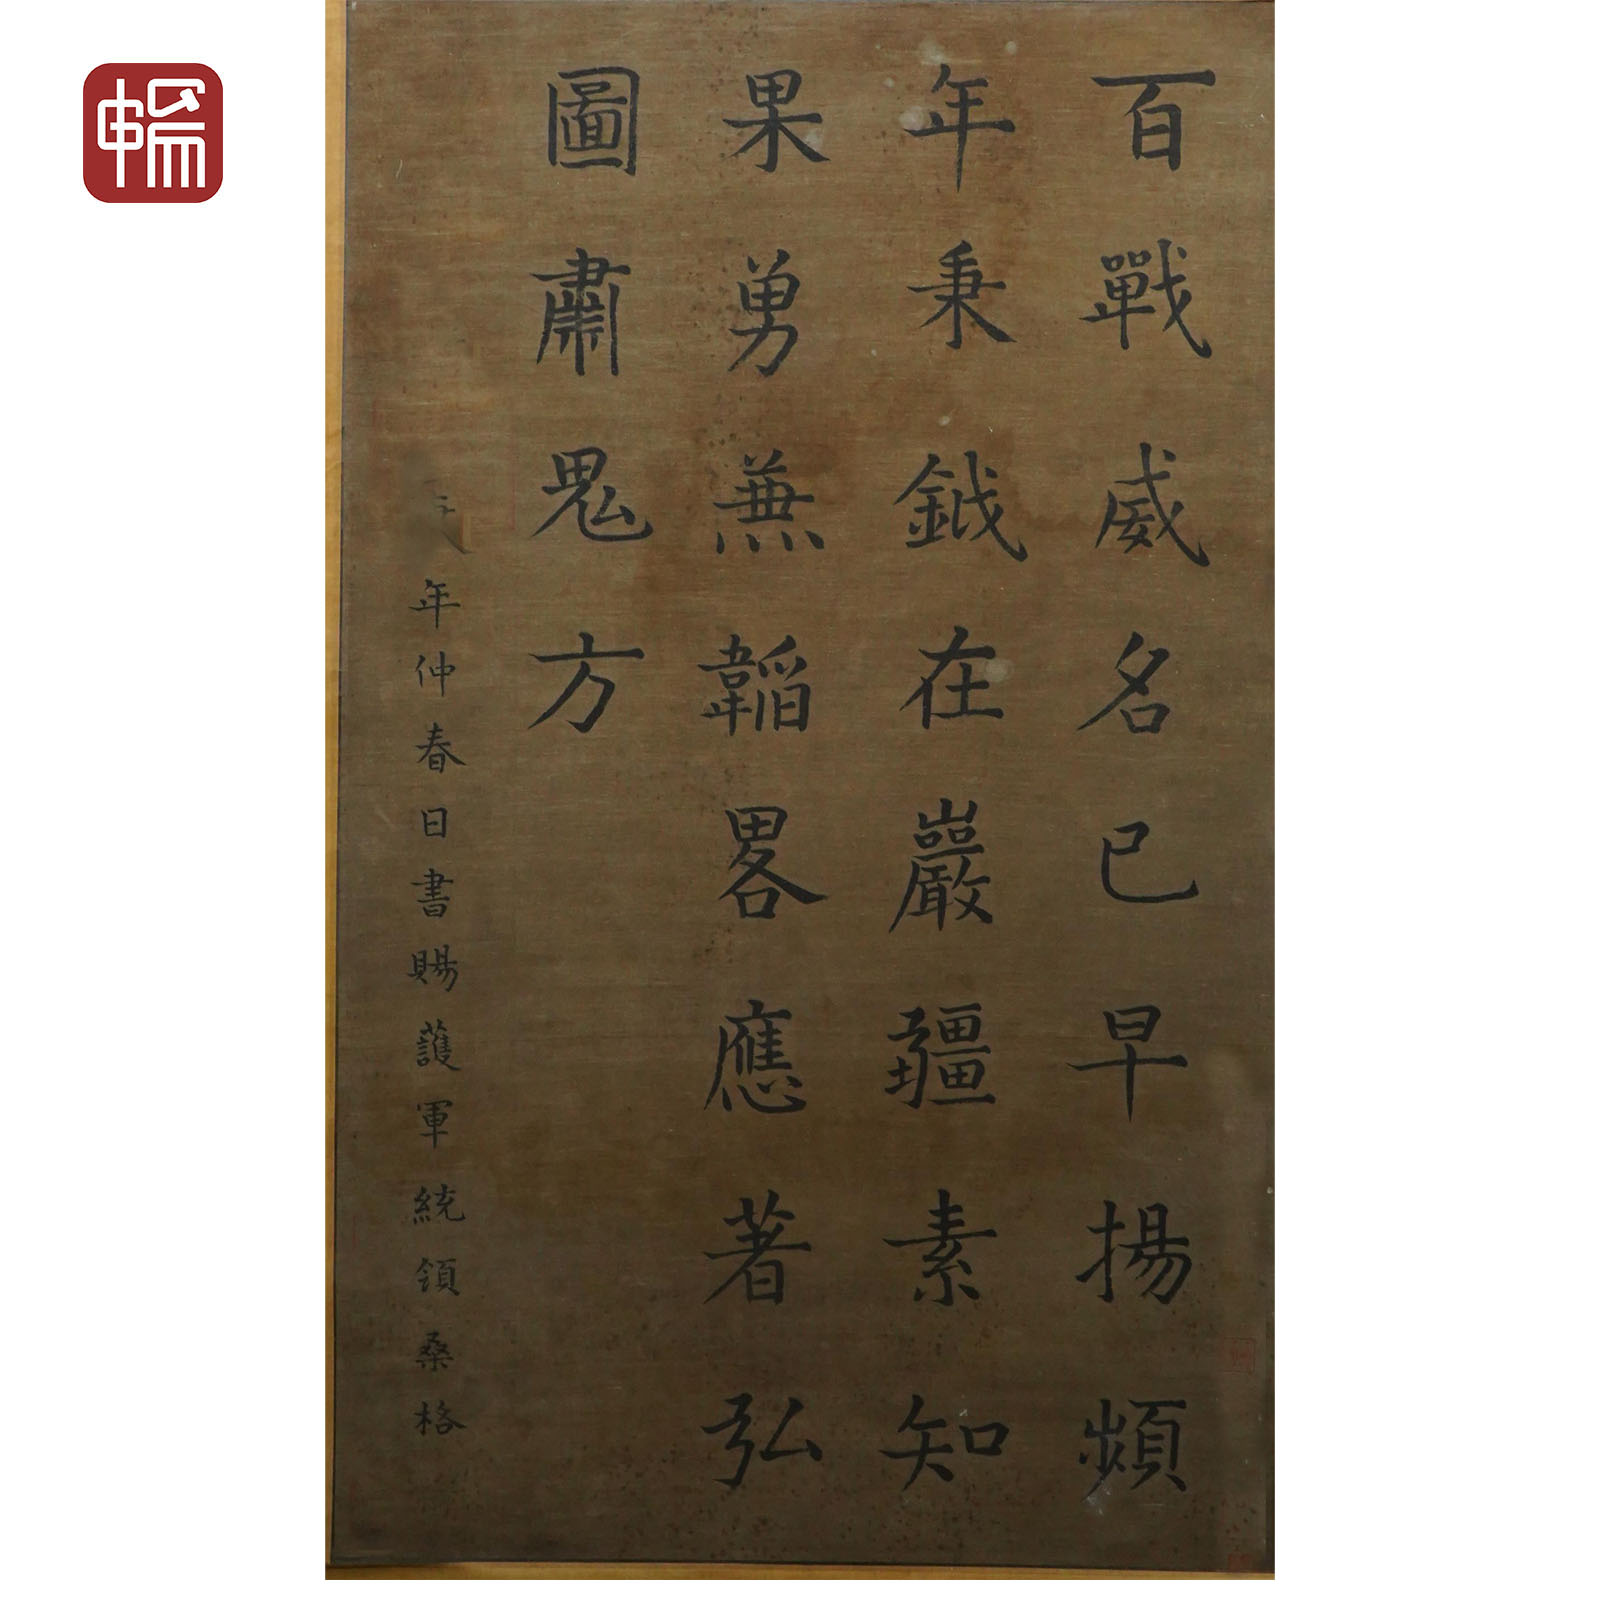 百戰威名已早揚頻
年秉鉞在巖疆素知
果勇兼韜畧應著弘
圖肅鬼方
年仲春日書賜護軍統領桑格